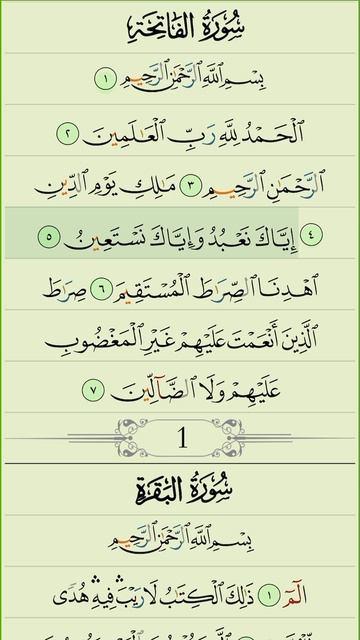 سُورَةُ الفَاتِحَةِ
بِسْمِ ٱللَّهِ ٱلرَّحْمَٰنِ ٱلرَّحِيمِ ١
ٱلْحَمْدُ لِلَّهِ رَبِّ ٱلْعَٰلَمِينَ ٢
ٱلرَّحْمَٰنِ ٱلرَّحِيمِ ٣ مَٰلِكِ يَوْمِ ٱلدِّينِ
٤ إِيَّاكَ نَعْبُدُ وَإِيَّاكَ نَسْتَعِينُ ٥
ٱهْدِنَا ٱلصِّرَٰطَ ٱلْمُسْتَقِيمَ ٦ صِرَٰطَ
ٱلَّذِينَ أَنْعَمْتَ عَلَيْهِمْ غَيْرِ ٱلْمَغْضُوبِ
عَلَيْهِمْ وَلَا ٱلضَّآلِّينَ ٧
1
سُورَةُ البَقَرَةِ
بِسْمِ ٱللَّهِ ٱلرَّحْمَٰنِ ٱلرَّحِيمِ
الٓمٓ ١ ذَٰلِكَ ٱلْكِتَٰبُ لَا رَيْبَ ۛ فِيهِ ۛ هُدًى